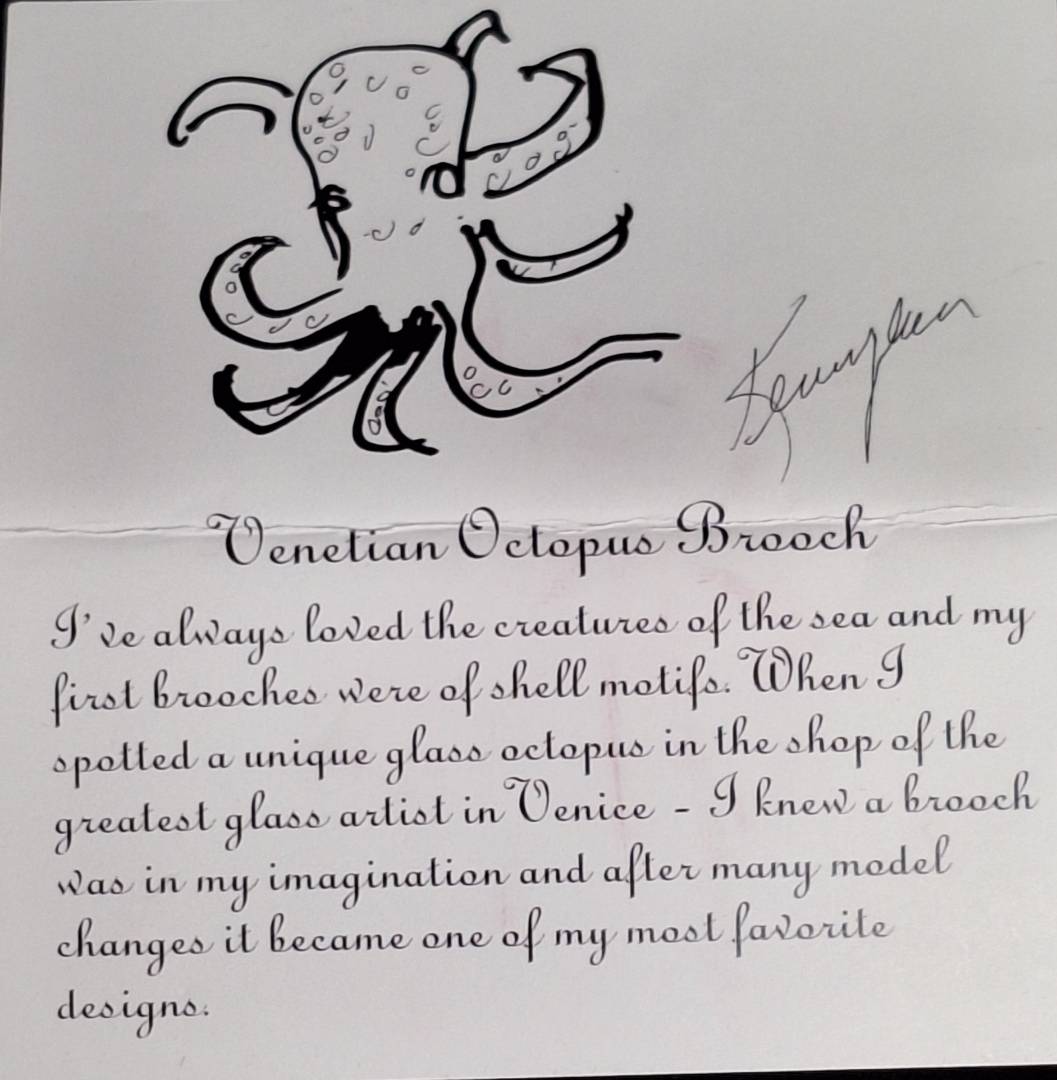 Venetian Octopus Brooch
I've always loved the creatures of the sea and my
first brooches were of shell motifs. When I
spotted a unique glass octopus in the shop of the
greatest glass artist in Venice - I knew a brooch
was in my imagination and after many model
changes it became one of my most favorite
designs.